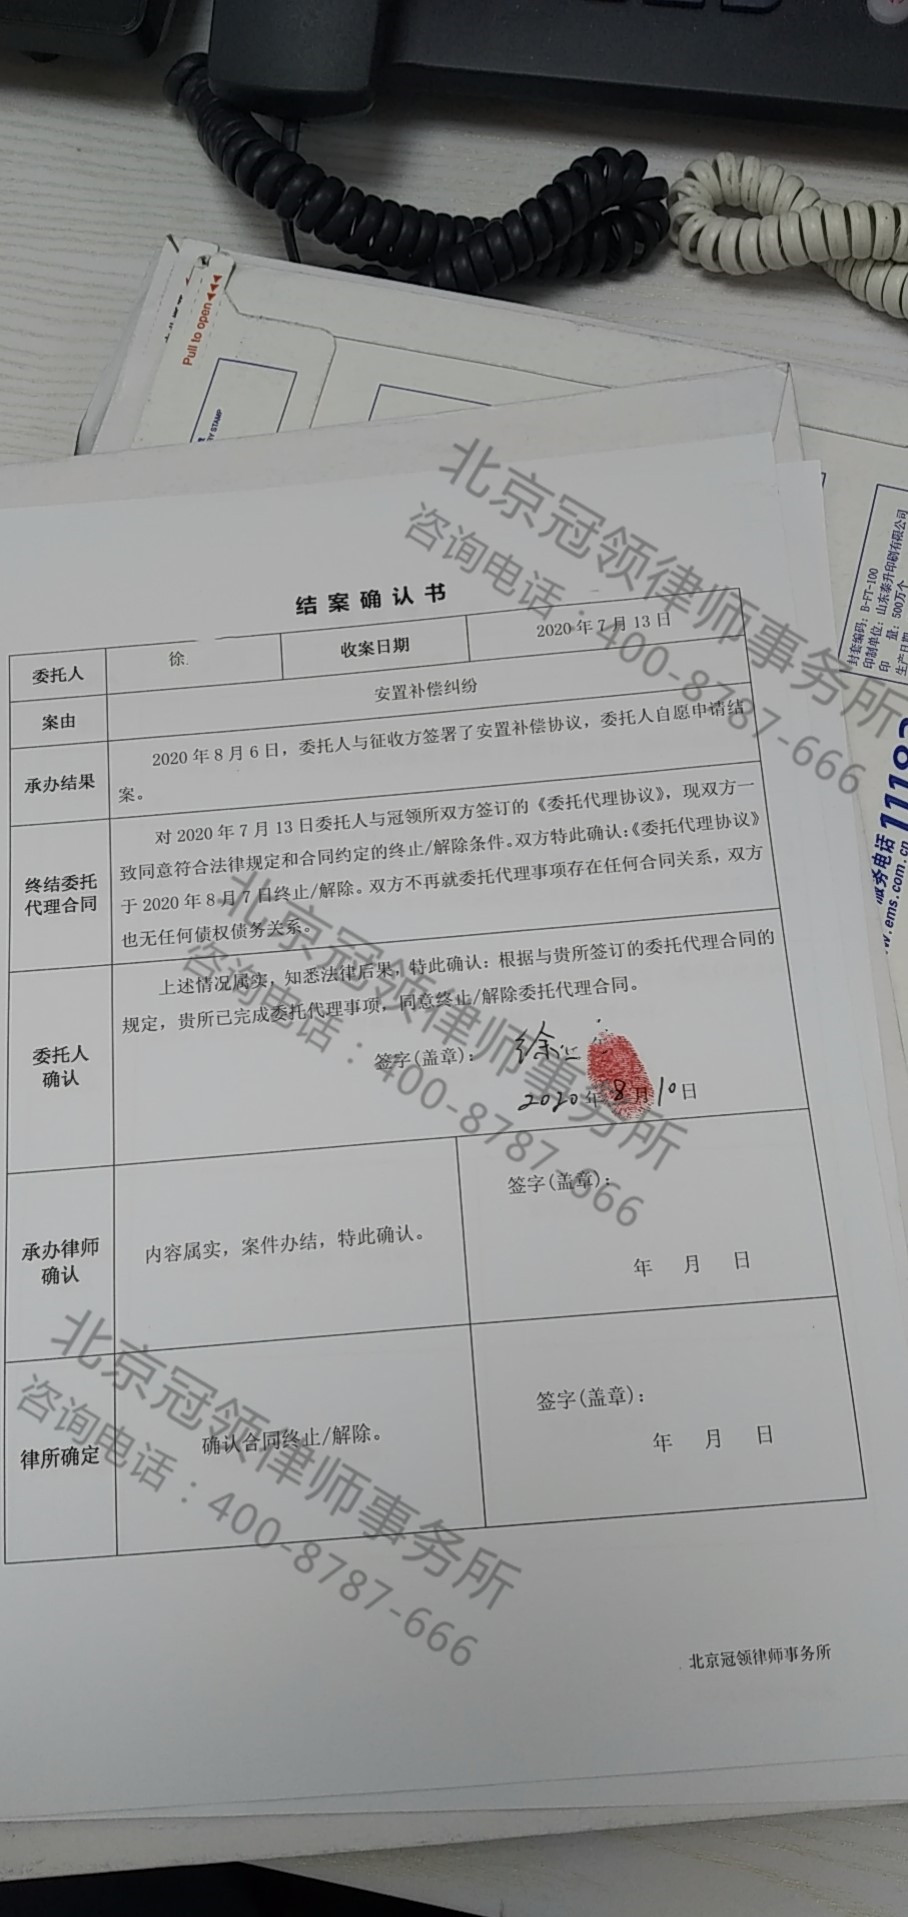 Pull to open
RY STAMP
封套编码：B-FT-100
印制单位：山东泰升印刷有限公司
印　量：500万个
生产日期
服务电话 11183
w.ems.com.cn
结案确认书
委托人 徐 收案日期 2020年7月13日
案由 安置补偿纠纷
承办结果
2020年8月6日，委托人与征收方签署了安置补偿协议，委托人自愿申请结
案。
终结委托
代理合同
对2020年7月13日委托人与冠领所双方签订的《委托代理协议》，现双方一
致同意符合法律规定和合同约定的终止/解除条件。双方特此确认：《委托代理协议》
于2020年8月7日终止/解除。双方不再就委托代理事项存在任何合同关系，双方
也无任何债权债务关系。
委托人
确认
上述情况属实，知悉法律后果，特此确认：根据与贵所签订的委托代理合同的
规定，贵所已完成委托代理事项，同意终止/解除委托代理合同。
签字(盖章)：徐
2020年8月10日
承办律师
确认
内容属实，案件办结，特此确认。
签字(盖章)：
年　月　日
律所确定
确认合同终止/解除。
签字(盖章)：
年　月　日
北京冠领律师事务所
北京冠领律师事务所
咨询电话：400-8787-666
北京冠领律师事务所
咨询电话：400-8787-666
北京冠领律师事务所
咨询电话：400-8787-666